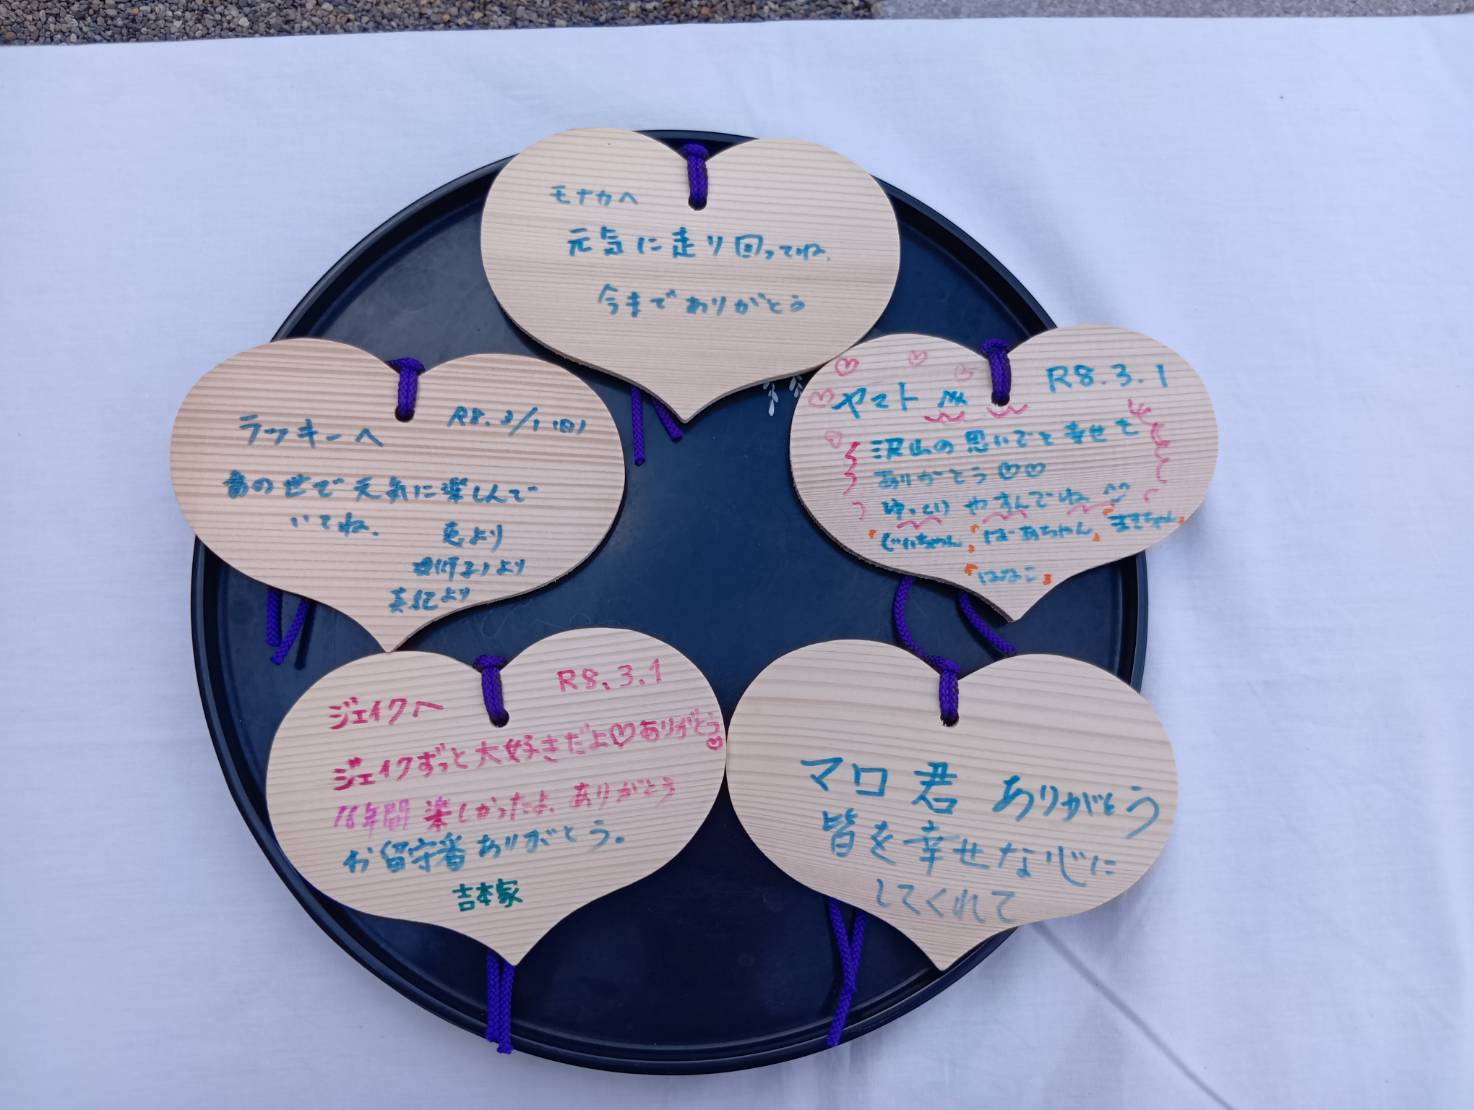 モナカへ
元気に走り回ってね。
今までありがとう
ラッキーへ
R8.3/1(日)
あの世で元気に楽しんで
いてね。
より
より
真紀より
ヤマト
R8.3.1
沢山の思いでと幸せを
ありがとう♡♡
ゆっくりやすんでね
"じいちゃん" "ばあちゃん"
"はなこ"
ジェイクへ
R8.3.1
ジェイクずっと大好きだよ♡ありがとう♡
16年間楽しかったよ。ありがとう
お留守番ありがとう。
吉本家
マロ君 ありがとう
皆を幸せな心に
してくれて